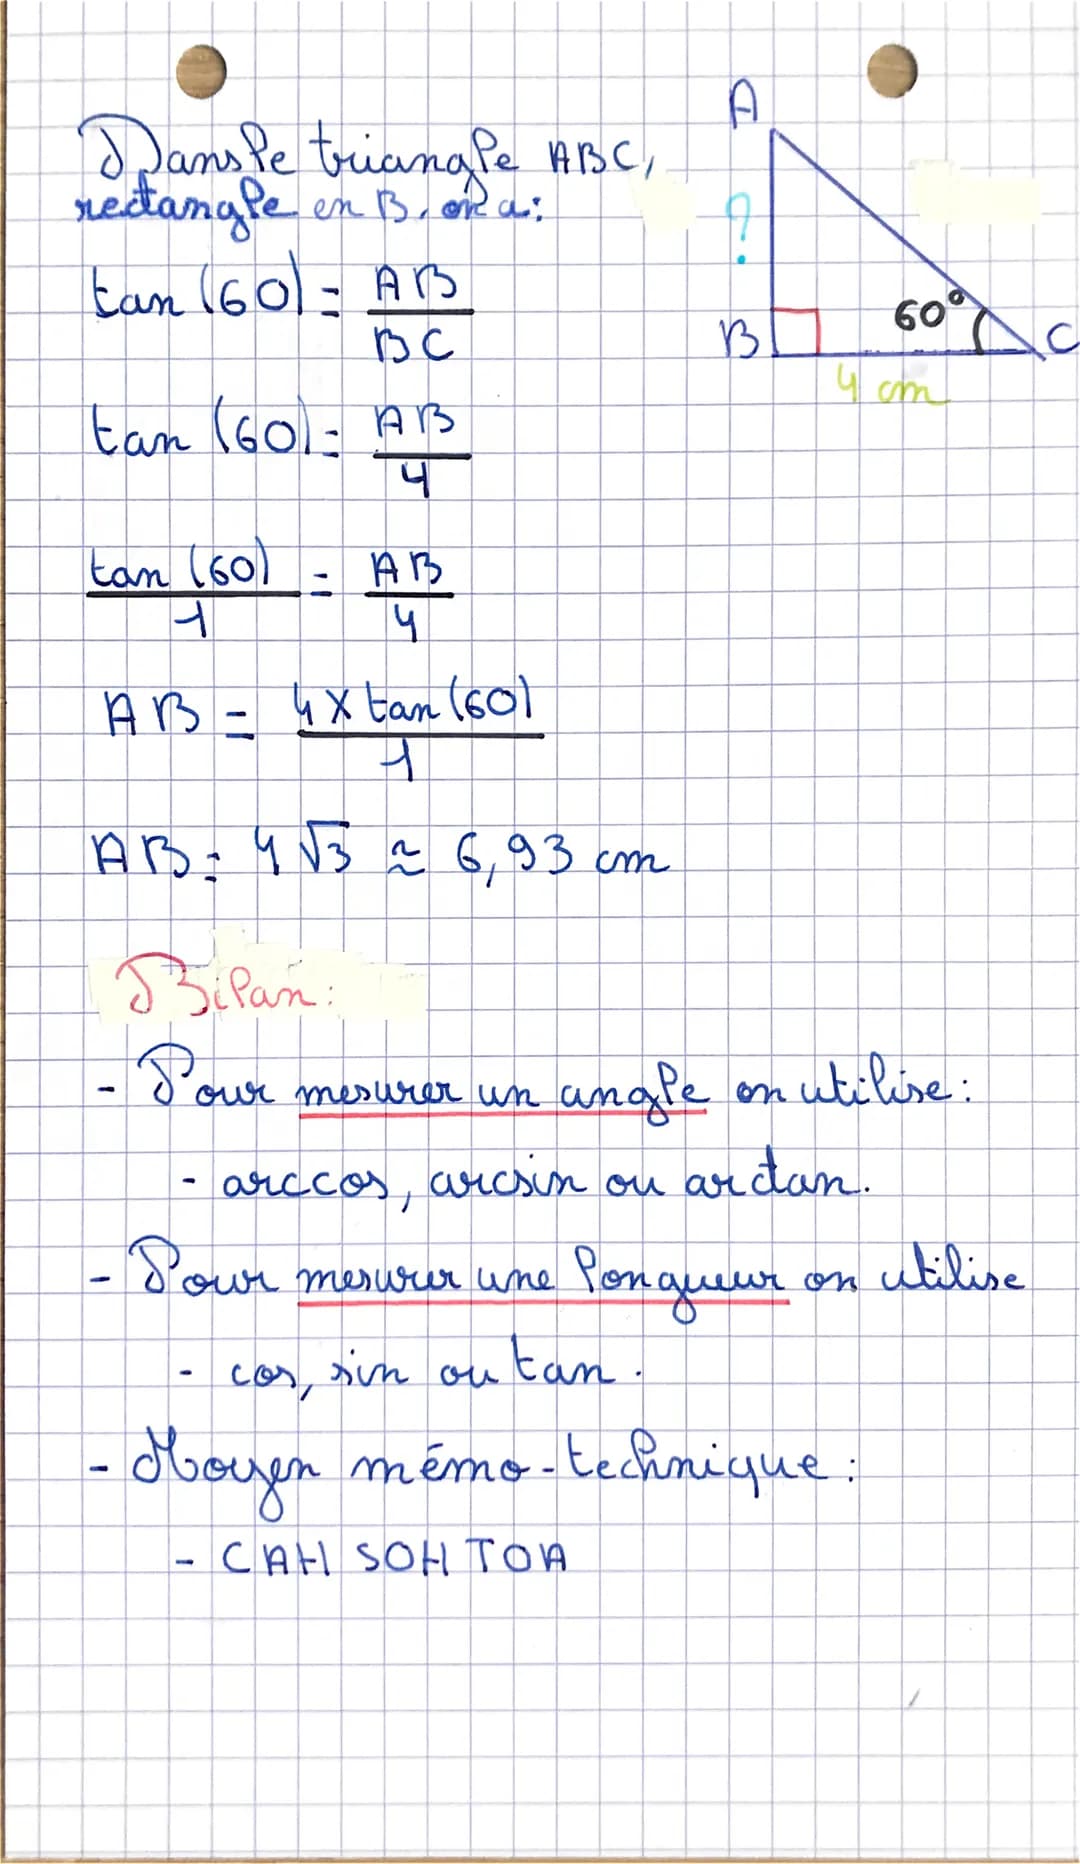 Dans le triangle ABC,
rectangle en B, on a:
tan (60) = AB
BC
tan (60) = AB
4
tan (60) = AB
1 4
AB = 4 x tan (60)
1
AB = 4 √3 ≈ 6,93 cm
A
?
B
60°
C
4 cm
Bilan:
- Pour mesurer un angle on utilise:
- arccos, arcsin ou arctan.
- Pour mesurer une longueur on utilise
- cos, sin ou tan.
- Moyen mémo-technique:
- CAH SOH TOA